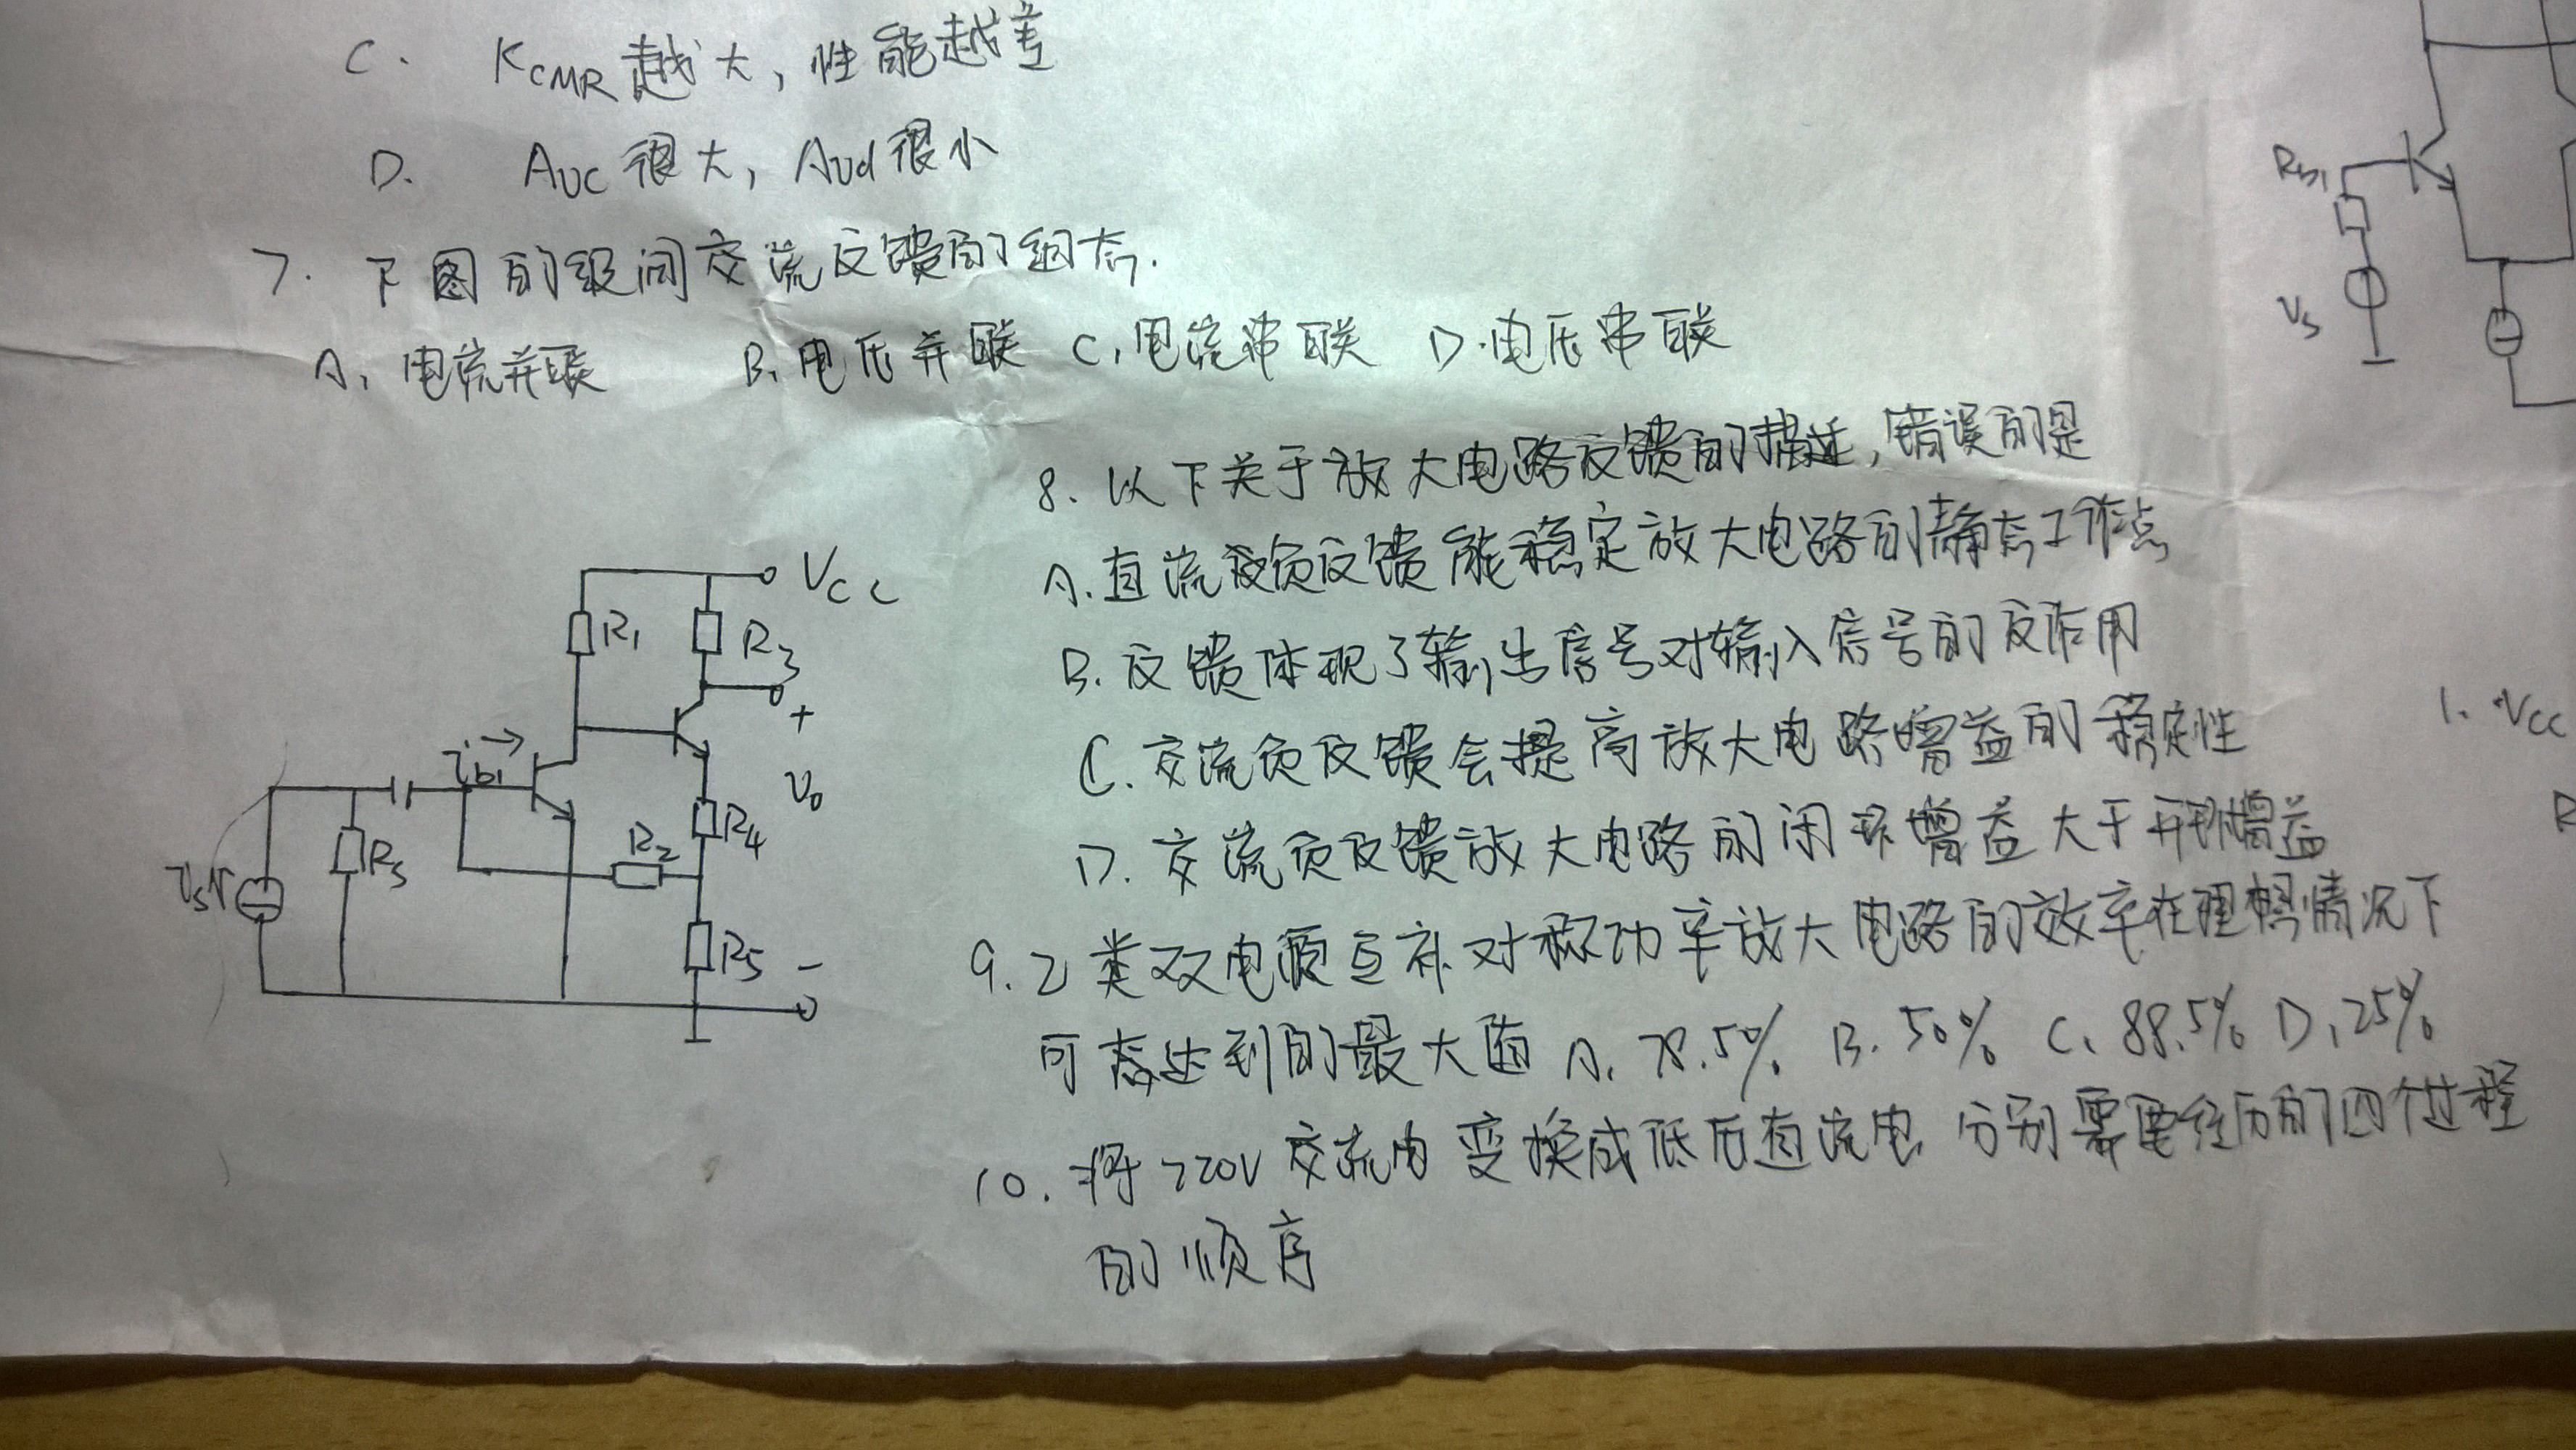 C. KCMR越大，性能越差
D. AUC很大，AUd很小
7. 下图的级间交流反馈的组态.
A. 电流并联 B. 电压并联 C. 电流串联 D. 电压串联
8. 以下关于放大电路反馈的描述，错误的是
A. 直流负反馈能稳定放大电路的静态工作点
B. 反馈体现了输出信号对输入信号的反作用
C. 交流负反馈会提高放大电路增益的稳定性
D. 交流负反馈放大电路的闭环增益大于开环增益
9. 乙类双电源互补对称功率放大电路的效率在理想情况下
可达到的最大值 A. 78.5% B. 50% C. 88.5% D. 25%
10. 将220V交流电变换成低压直流电 分别需要经历的四个过程
的顺序
VCC
R1
R3
+
ib1
Vo
R4
R2
Rs
is
R5
-
Rb1
Vs
1. VCC
R